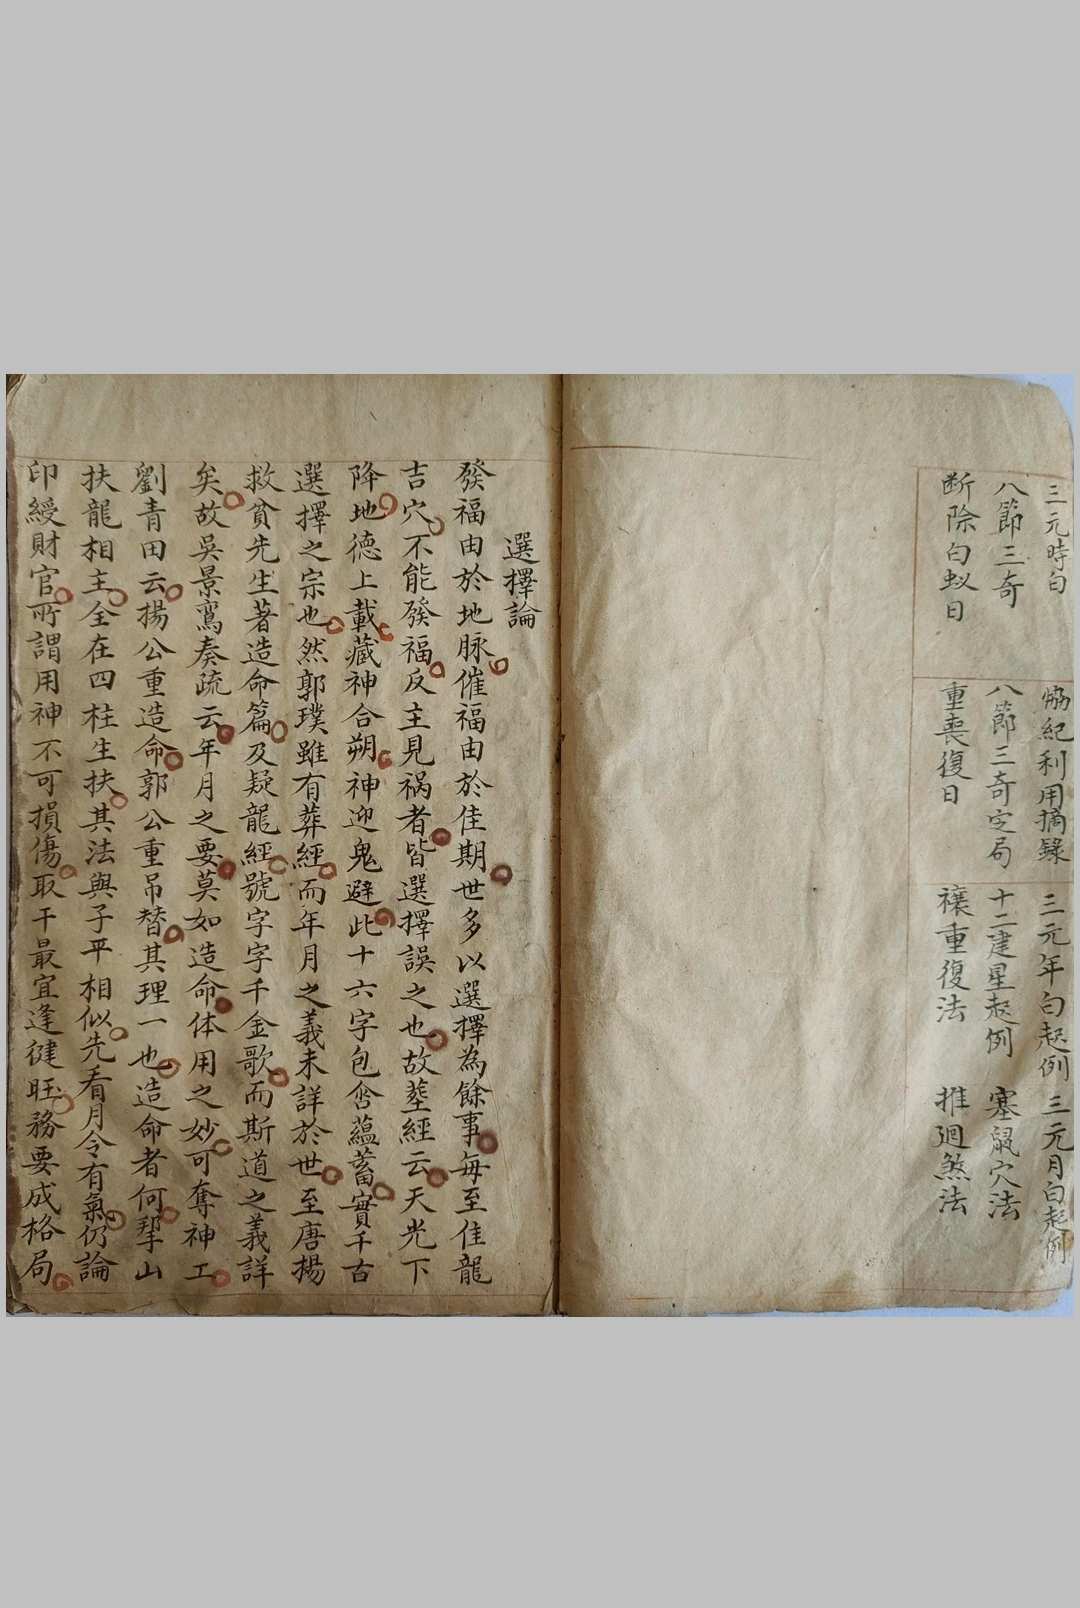 三元時白
八節三奇
断除白蚁日
協紀利用摘錄
八節三奇定局
重喪復日
三元年白起例 三元月白起例
十二建星起例 塞鼠穴法
禳重復法 推廻煞法
選擇論
發福由於地脉催福由於佳期世多以選擇為餘事每至佳龍
吉穴不能發福反主見祸者皆選擇誤之也故塟經云天光下
降地德上載藏神合朔神迎鬼避此十六字包含蘊蓄實千古
選擇之宗也然郭璞雖有葬經而年月之義未詳於世至唐楊
救貧先生著造命篇及疑龍經號字字千金歌而斯道之義詳
矣故吳景鸞奏疏云年月之要莫如造命体用之妙可奪神工
劉青田云楊公重造命郭公重吊替其理一也造命者何挐山
扶龍相主全在四柱生扶其法與子平相似先看月令有氣仍論
印綬財官所謂用神不可損傷取干最宜逢健旺務要成格局